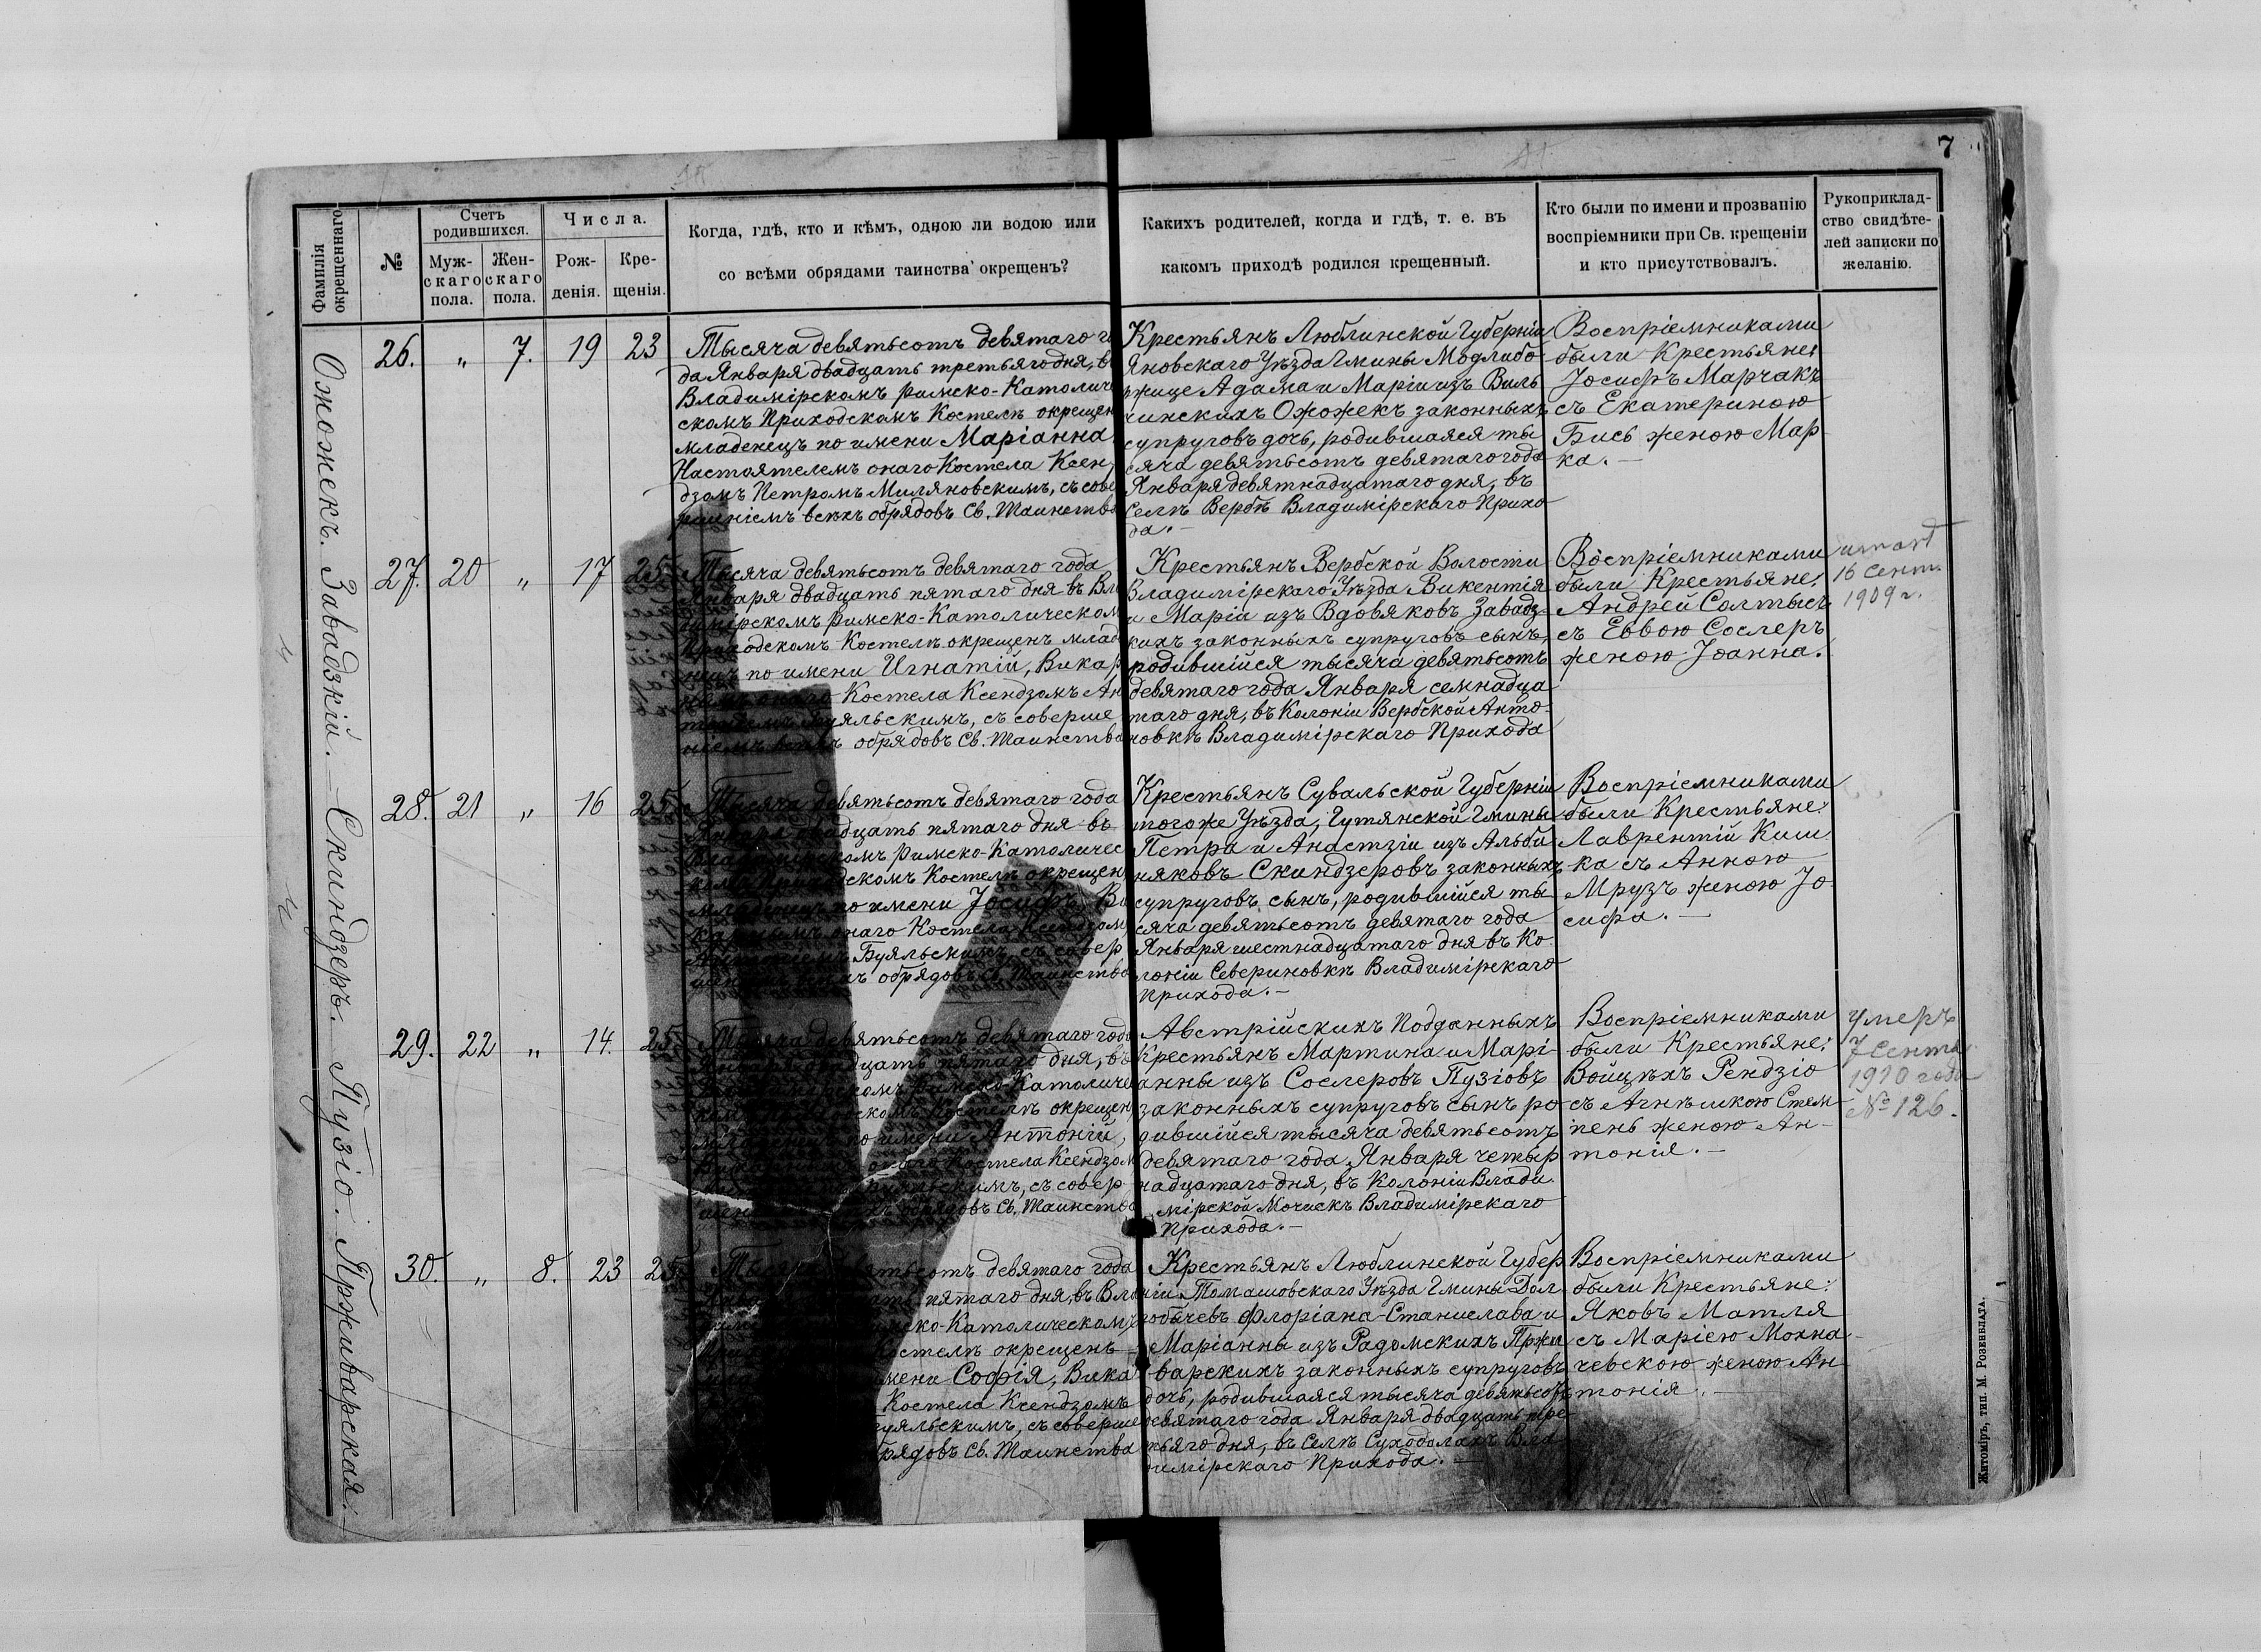 7
Фамилія окрещеннаго
№
Счетъ родившихся.
Муж-
скаго
пола.
Жен-
скаго
пола.
Числа.
Рож-
денія.
Кре-
щенія.
Когда, гдѣ, кто и кѣмъ, одною ли водою или
со всѣми обрядами таинства окрещенъ?
Какихъ родителей, когда и гдѣ, т. е. въ
какомъ приходѣ родился крещенный.
Кто были по имени и прозванію
воспріемники при Св. крещеніи
и кто присутствовалъ.
Рукоприклад-
ство свидѣте-
лей записки по
желанію.
Ожожекъ. Завадзкій. — Скиндзеръ. Пузіо. Прживарская.
26. „ 7. 19 23
Тысяча девятьсотъ девятаго го
да Января двадцать третьяго дня, въ
Владимірскомъ Римско-Католиче
скомъ Приходскомъ Костелѣ окрещен
младенецъ по имени Маріанна
Настоятелемъ онаго Костела Ксен,
дзомъ Петромъ Миляновскимъ, съ сове
шеніемъ всѣхъ обрядовъ Св. Таинства
Крестьянъ Люблинской Губерніи
Яновскаго Уѣзда Гмины Модлибо
ржице Адама и Маріи изъ Виль
чинскихъ Ожожекъ законныхъ
супруговъ дочь, родившаяся ты
сяча девятьсотъ девятаго года
Января девятнадцатаго дня, въ
Селѣ Вербѣ Владимірскаго Прихо
да. —
Воспріемниками
были Крестьяне:
Іосифъ Марчакъ
съ Екатериною
Бись женою Мар
ка. —
27. 20 „ 17 25.
Тысяча девятьсотъ девятаго года
Января двадцать пятаго дня въ Вла
димірскомъ Римско-Католическом
Приходскомъ Костелѣ окрещенъ млад
нецъ по имени Игнатій, Викар
онаго Костела Ксендзомъ Ан
Буяльскимъ, съ соверше
ніемъ всѣхъ обрядовъ Св. Таинства
Крестьянъ Вербской Волости
Владимірскаго Уѣзда Викентія
и Маріи изъ Вдовяковъ Завадз-
кихъ законныхъ супруговъ сынъ,
родившійся тысяча девятьсотъ
девятаго года Января семнадца
таго дня, въ Колоніи Вербской Анто-
новкѣ Владимірскаго Прихода
Воспріемниками
были Крестьяне:
Андрей Солтысъ
съ Еввою Сослеръ
женою Іоанна.
umarł
16 Сент.
1909 г.
28. 21 „ 16 25.
Тысяча девятьсотъ девятаго года
Января двадцать пятаго дня въ
Владимірскомъ Римско-Католичес
комъ Приходскомъ Костелѣ окрещен
младенецъ по имени Іосифъ, Ви
каріемъ онаго Костела Ксендзом
Антоніемъ Буяльскимъ, съ совер
шеніемъ всѣхъ обрядовъ Св. Таинства
Крестьянъ Сувальской Губерніи
тогоже Уѣзда, Гутянской Гмины
Петра и Анастзіи изъ Альби
няковъ Скиндзеровъ законныхъ
супруговъ сынъ, родившійся ты
сяча девятьсотъ девятаго года
Января шестнадцатаго дня въ Ко
лоніи Севериновкѣ Владимірскаго
прихода. —
Воспріемниками
были Крестьяне:
Лаврентій Киш
ка съ Анною
Мрузъ женою Іо
сифа. —
29. 22 „ 14. 25.
Тысяча девятьсотъ девятаго года
Января двадцать пятаго дня, въ
Римско-Католиче
Костелѣ окрещен
по имени Антоній,
онаго Костела Ксендзом
Буяльскимъ, съ совер
обрядовъ Св. Таинства
Австрійскихъ Подданныхъ
Крестьянъ Мартина и Марі
анны изъ Сослеровъ Пузіовъ
законныхъ супруговъ сынъ ро
дившійся тысяча девятьсотъ
девятаго года, Января четыр
надцатаго дня, въ Колоніи Влади
мірской Мочискѣ Владимірскаго
Прихода. —
Воспріемниками
были Крестьяне:
Войцѣхъ Рендзіо
съ Агнѣшкою Стем-
пень женою Ан-
тонія. —
Умеръ
7 Сент.
1910 года
№ 126.
30. „ 8. 23 25.
девятьсотъ девятаго года
пятаго дня, въ Вла
Римско-Католическомъ
Костелѣ окрещенъ
имени Софія, Вика
Костела Ксендзомъ
Буяльскимъ, съ соверше
обрядовъ Св. Таинства
Крестьянъ Люблинской Губер
ніи Томашовскаго Уѣзда Гмины Дол
гобычевъ Флоріана-Станислава и
Маріанны изъ Радомскихъ Пржи
варскихъ законныхъ супруговъ
дочь, родившаяся тысяча девятьсотъ
девятаго года Января двадцать тре
тьяго дня, въ Селѣ Суходолахъ Вла
димірскаго Прихода. —
Воспріемниками
были Крестьяне:
Яковъ Матля
съ Маріею Мохна-
чевскою женою Ан
тонія. —
Житоміръ, тип. М. Розенблата.